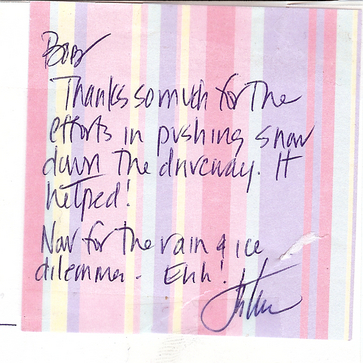 Thanks so much for the
efforts in pushing snow
down the driveway. It
helped!
Now for the rain & ice
dilemma. Ehh!